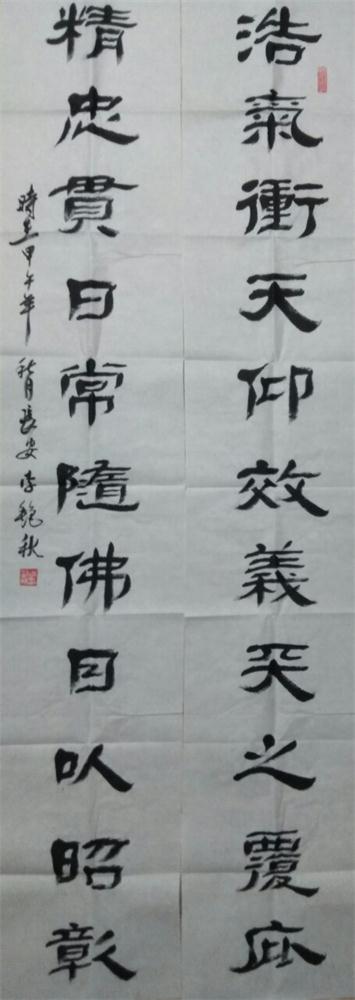 浩氣衝天仰效義天之覆庇
精忠貫日常隨佛日以昭彰
時在甲午年秋月長安李秋